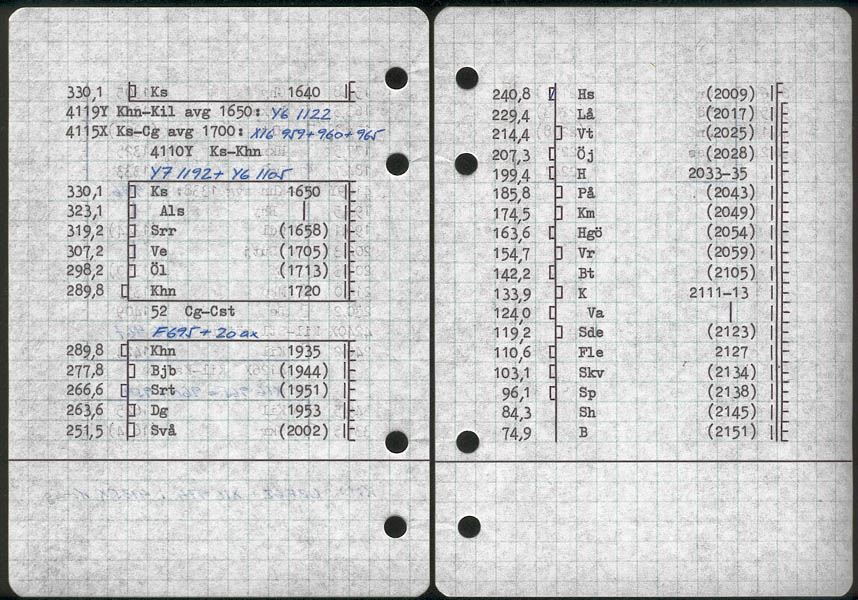 330,1 Ks 1640
4119Y Khn-Kil avg 1650: Y6 1122
4115X Ks-Cg avg 1700: X16 959+960+965
4110Y Ks-Khn
Y7 1192+ Y6 1105
330,1 Ks 1650
323,1 Als |
319,2 Srr (1658)
307,2 Ve (1705)
298,2 Öl (1713)
289,8 Khn 1720
52 Cg-Cst
F695 + 20 ax
289,8 Khn 1935
277,8 Bjb (1944)
266,6 Srt (1951)
263,6 Dg 1953
251,5 Svå (2002)
240,8 Hs (2009)
229,4 Lå (2017)
214,4 Vt (2025)
207,3 Öj (2028)
199,4 H 2033-35
185,8 På (2043)
174,5 Km (2049)
163,6 Hgö (2054)
154,7 Vr (2059)
142,2 Bt (2105)
133,9 K 2111-13
124,0 Va |
119,2 Sde (2123)
110,6 Fle 2127
103,1 Skv (2134)
96,1 Sp (2138)
84,3 Sh (2145)
74,9 B (2151)